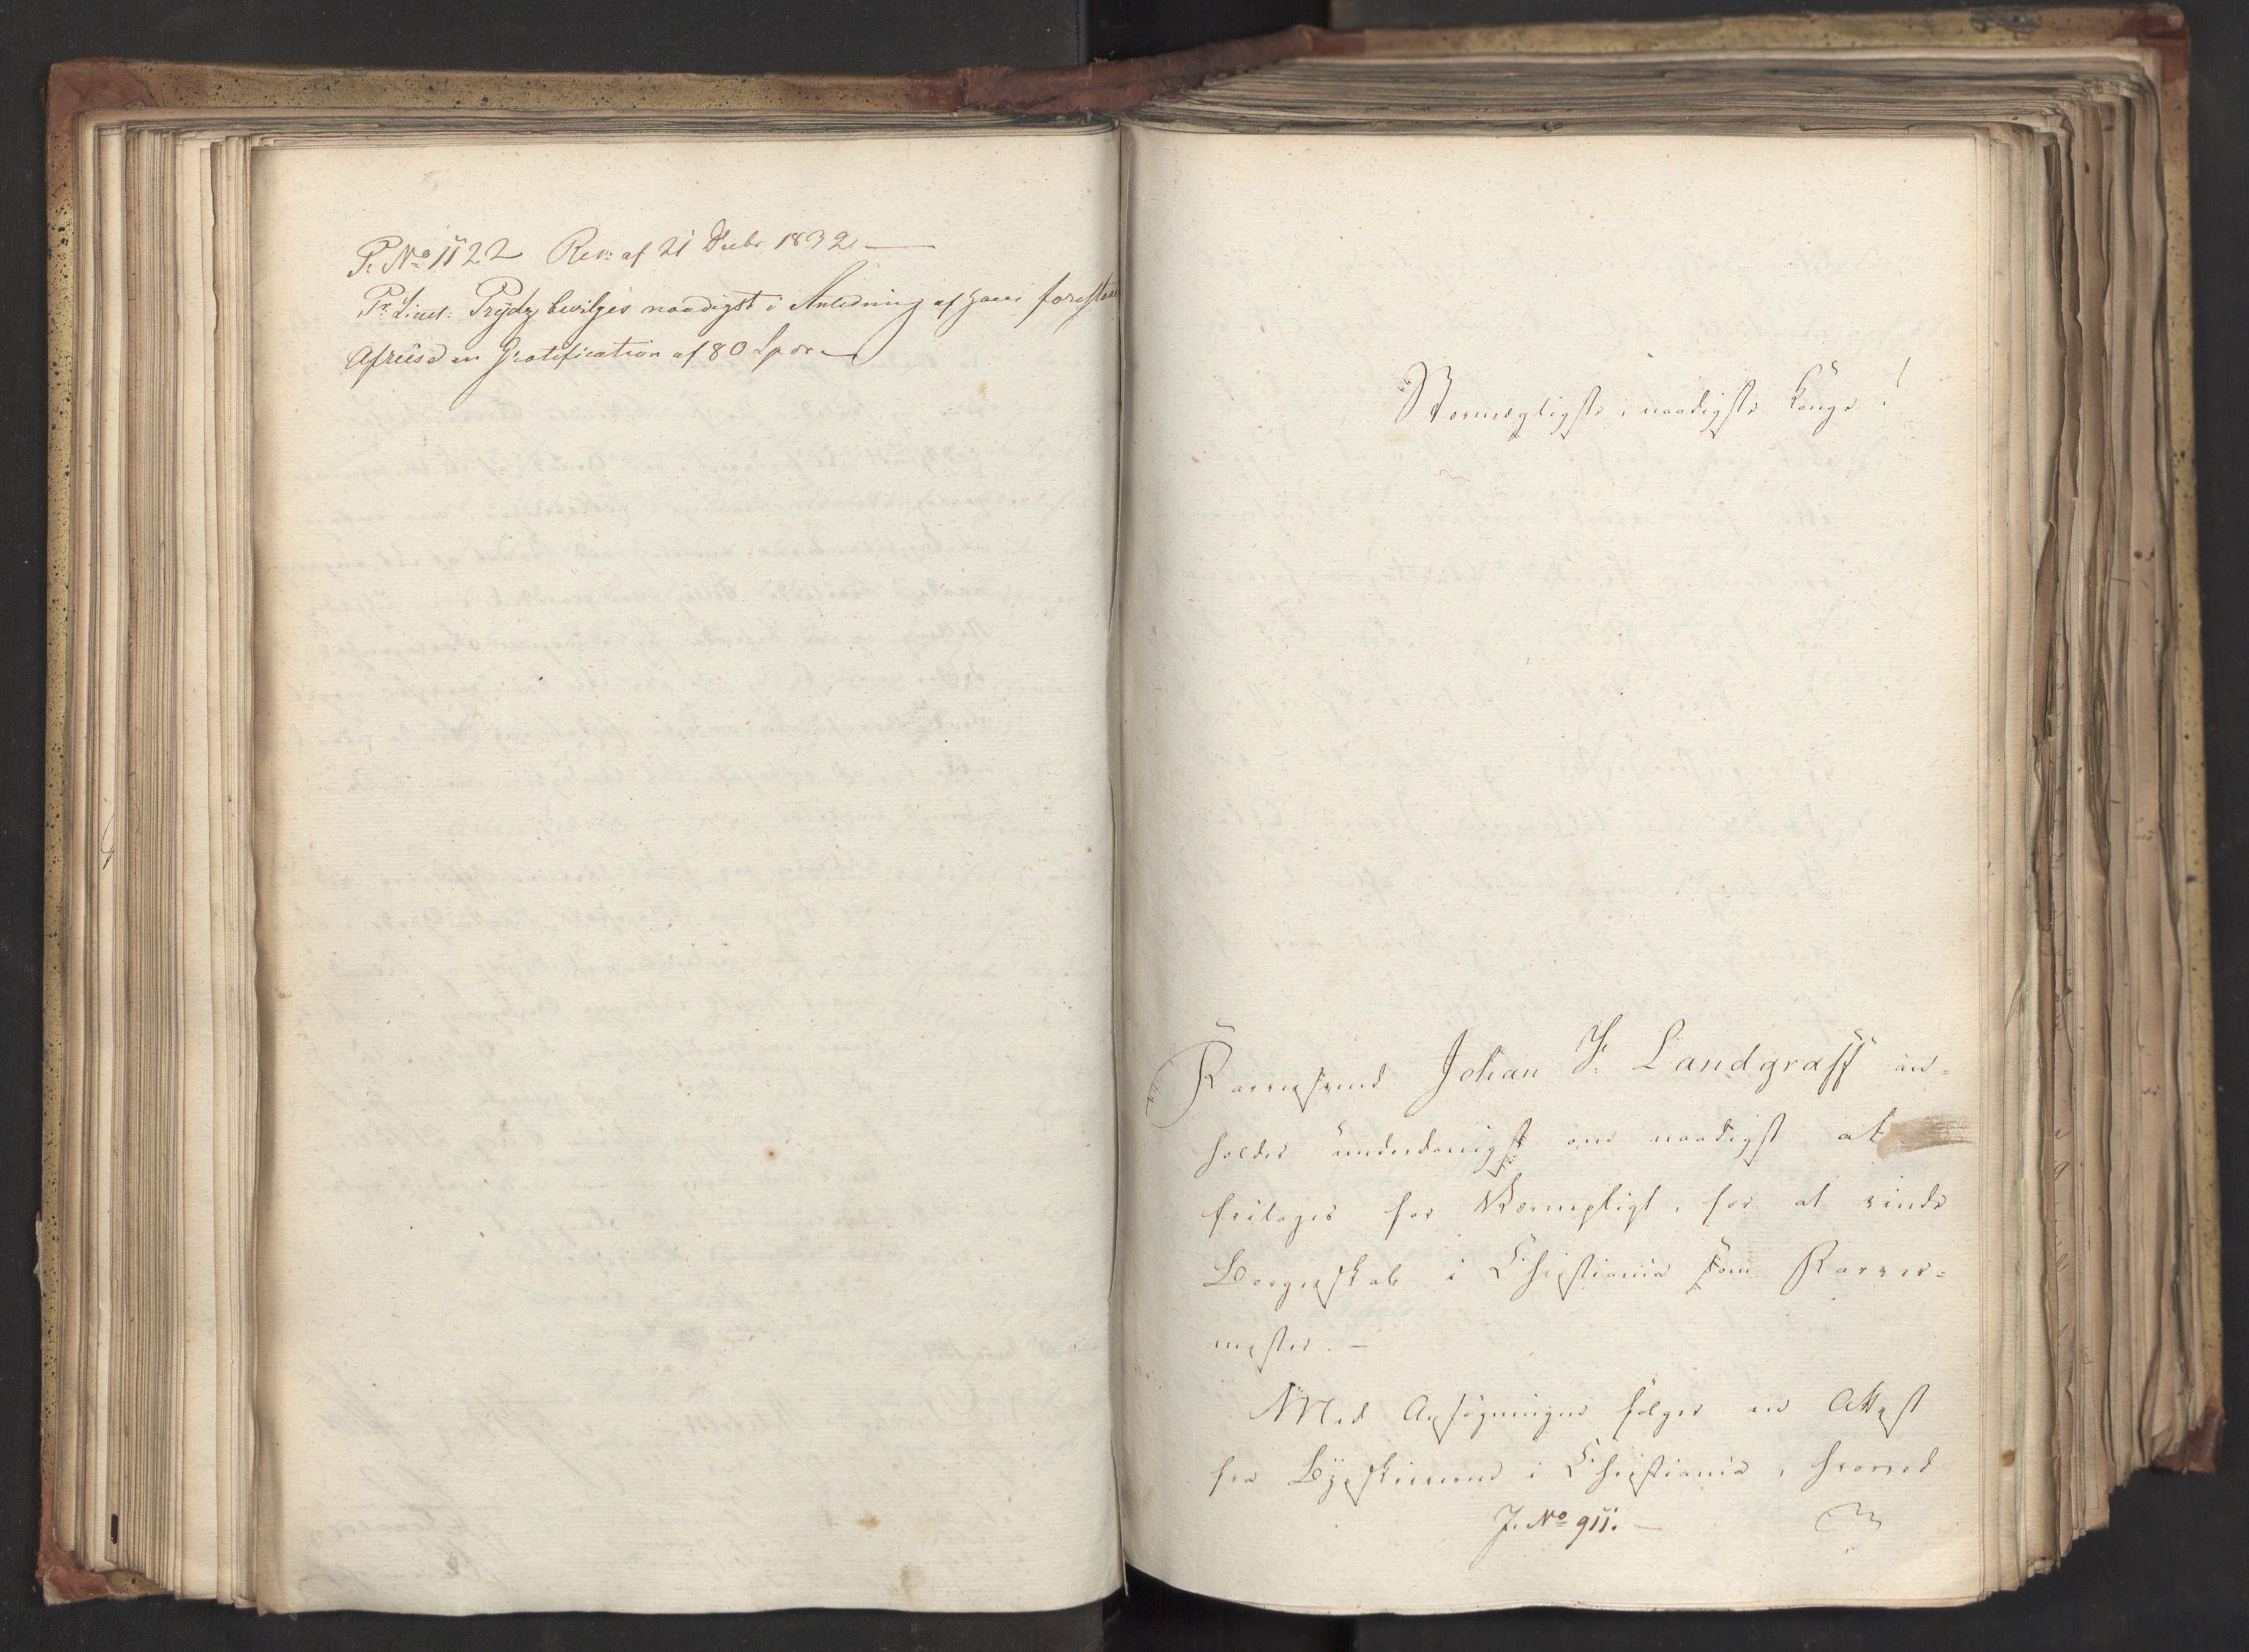 P. No 1122 Res: af 21 Decbr 1832 —
Pr. Lieut: Prydz bevilges naadigst i Anledning af hans forestaae
Afreise en Gratification af 80 Spdr
Stormægtigste, naadigste Konge!
Karresvend Johan F. Landgraff an-
holder underdanigst om naadigst at
fritages for Værnepligt, for at vinde
Borgerskab i Christiania som Karree-
mester. —
Med Ansøgningen følger en Attest
fra Byeskriveren i Christiania, hvorved
J. No 911. —